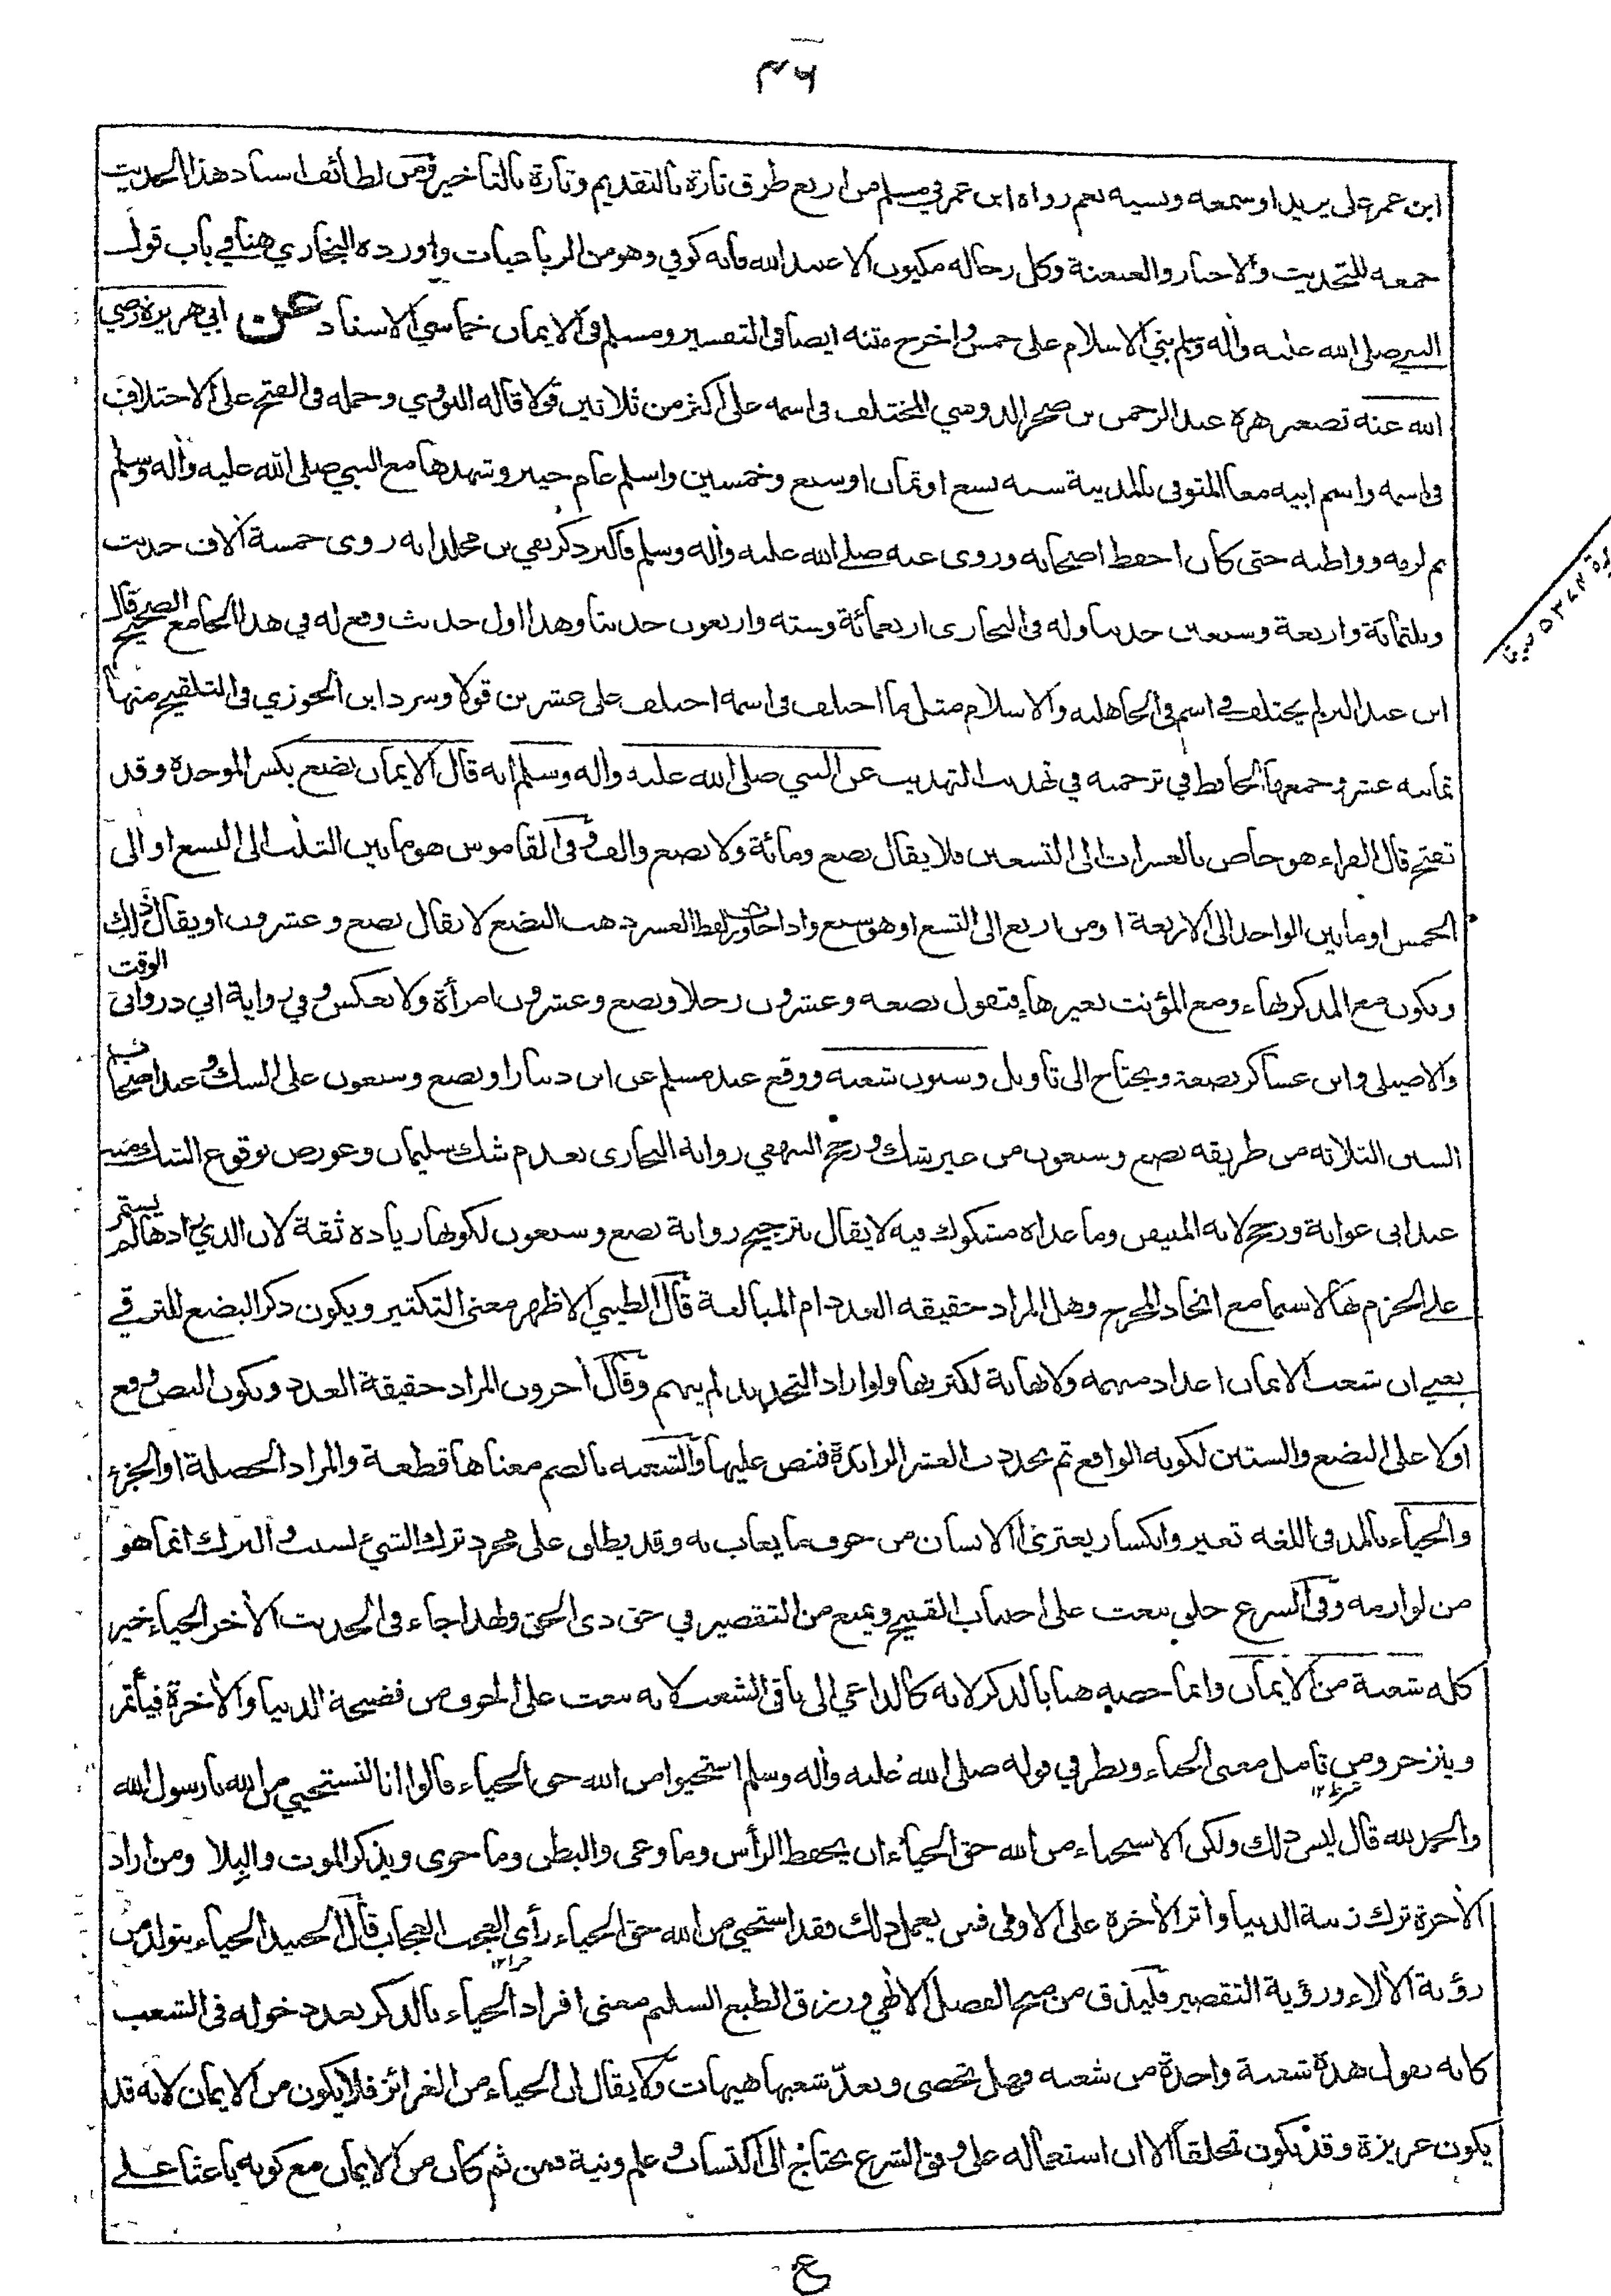 ٤٦
ابن عمر على يزيد او سمعه ونسيه نعم رواه ابن عمر في مسلم من اربع طرق تارة بالتقديم وتارة بالتاخير ومن لطائف اسناد هذا الحديث
جمعه للتحديث والاخبار والعنعنة وكل رجاله مكيون الا عبيد الله فانه كوفي وهو من الرباعيات واورده البخاري هنا في باب قول
النبي صلى الله عليه وأله وسلم بني الاسلام على خمس واخرج متنه ايضا في التفسير ومسلم في الايمان خماسي الاسناد عن ابي هريرة رضي
الله عنه تصغير هرة عبد الرحمن بن صخر الدوسي المختلف في اسمه على اكثر من ثلاثين قولا قاله النووي وحمله في الفتح على الاختلاف
في اسمه واسم ابيه معا المتوفى بالمدينة سنه تسع او ثمان او سبع وخمسين واسلم عام خيبر وشهدها مع النبي صلى الله عليه وأله وسلم
ثم لزمه وواظبه حتى كان احفظ اصحابه وروى عنه صلى الله عليه وأله وسلم فاكثر ذكر بقي بن مخلد انه روى خمسة ألاف حديث
وثلثمائة واربعة وسبعين حديثا وله في البخارى اربعمائة وسته واربعون حديثا وهذا اول حديث وقع له في هذا الجامع الصحيح قال
ابن عبد البر لم يختلف في اسم في الجاهليه والاسلام مثل ما اختلف في اسمه اختلف على عشرين قولا وسرد ابن الجوزي في التلقيح منها
ثمانيه عشر وجمعها الحافظ في ترجمته في تهذيب التهذيب عن النبي صلى الله عليه واله وسلم انه قال الايمان بضع بكسر الموحدة وقد
تفتح قال الفراء هو خاص بالعشرات الى التسعين فلا يقال بضع ومائة ولا بضع والف وفى القاموس هو ما بين الثلث الى التسع او الى
الخمس او ما بين الواحد الى الاربعة او من اربع الى التسع او هو سبع واذا جاوزت لفظ العشر ذهب البضع لا يقال بضع وعشرون او يقال ذلك
ويكون مع المذكر بهاء ومع المؤنث بغيرها فتقول بضعه وعشرون رجلا وبضع وعشرون امرأة ولا تعكس وفي رواية ابي ذر وابي الوقت
والاصيلى وابن عساكر بضعة ويحتاج الى تاويل وستون شعبه ووقع عند مسلم عن ابن دينار او بضع وسبعون على الشك وعند اصحاب
السنن الثلاثه من طريقه بضع وسبعون من غير شك ورجح البيهقي رواية البخارى بعدم شك سليمان وعورض بوقوع الشك منه
عند ابى عوانة ورجح لانه المتيقن وما عداه مشكوك فيه لا يقال بترجيح رواية بضع وسبعون لكونها زيادة ثقة لان الذي زادها لم يستمر
على الجزم بها لاسيما مع اتحاد المخرج وهل المراد حقيقه العدد ام المبالغة قال الطيبي الاظهر معنى التكثير ويكون ذكر البضع للترقي
يعني ان شعب الايمان اعداد مبهمه ولا نهاية لكثرتها ولو اراد التحديد لم يبهم وقال أخرون المراد حقيقة العدد ويكون النص وقع
اولا على البضع والستين لكونه الواقع ثم تجددت العشر الزائدة فنص عليها والشعبه بالضم معناها قطعة والمراد الخصلة او الجزء
والحياء بالمد فى اللغه تغير وانكسار يعترى الانسان من خوف ما يعاب به وقد يطلق على مجرد ترك الشيء لسبب والترك انما هو
من لوازمه وفى الشرع خلق يبعث على اجتناب القبيح ويمنع من التقصير في حق ذى الحق ولهذا جاء فى الحديث الأخر الحياء خير
كله شعبة من الايمان وانما خصه هنا بالذكر لانه كالداعي الى باقى الشعب لانه يبعث على الخوف من فضيحة الدنيا والأخرة فيأتمر
وينزجر ومن تامل معنى الحياء ونظر في قوله صلى الله عليه وأله وسلم استحيوا من الله حق الحياء قالوا انا لنستحيي من الله يا رسول الله
والحمد لله قال ليس ذلك ولكن الاستحياء من الله حق الحياء ان يحفظ الرأس وما وعى والبطن وما حوى ويذكر الموت والبلا ومن اراد
الأخرة ترك زينة الدنيا وأثر الأخرة على الاولى فمن يعمل ذلك فقد استحيى من الله حق الحياء رأى العجب العجاب قال الجنيد الحياء يتولد من
رؤية الألاء ورؤية التقصير فليذق من منح الفضل الالهي ورزق الطبع السليم معنى افراد الحياء بالذكر بعد دخوله فى الشعب
كانه يقول هذة شعبة واحدة من شعبه فهل تحصى وتعدّ شعبها هيهات ولا يقال ان الحياء من الغرائز فلا يكون من الايمان لانه قد
يكون غريزة وقد يكون تخلقا الا ان استعماله على وفق الشرع يحتاج الى اكتساب وعلم ونية فمن ثم كان من الايمان مع كونه باعثا على